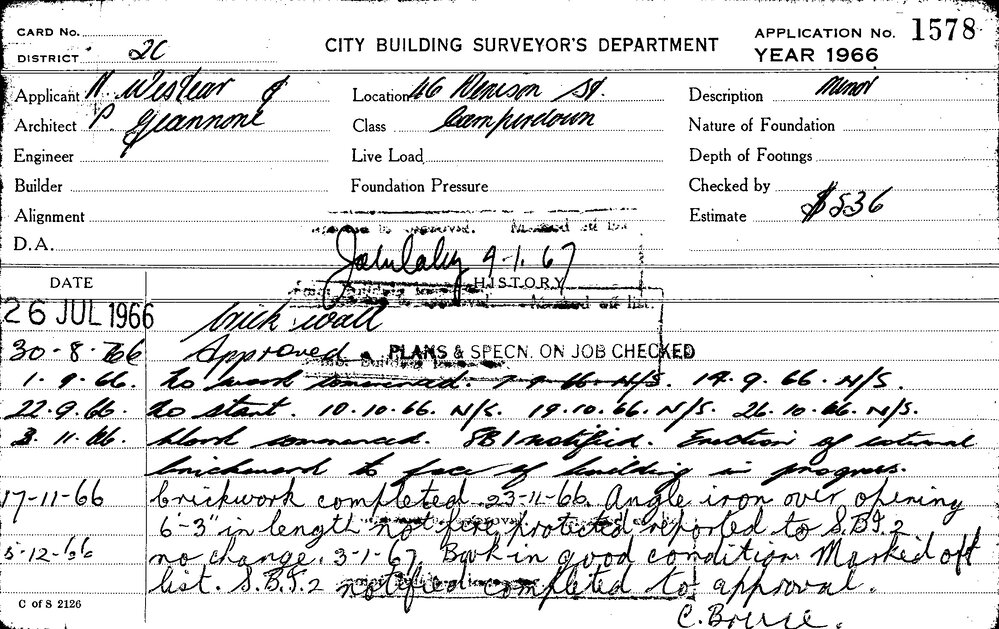 CARD No.
DISTRICT 2C
CITY BUILDING SURVEYOR'S DEPARTMENT
APPLICATION No. 1578
YEAR 1966
Applicant N. Westear &
Location 46 Denison St.
Description Minor
Architect P. Giannone
Class Camperdown
Nature of Foundation
Engineer
Live Load
Depth of Footings
Builder
Foundation Pressure
Checked by
Alignment
Estimate $536
D.A.
9-1.67
DATE
HISTORY
26 JUL 1966 brick wall
30-8-66 Approved PLANS & SPECN. ON JOB CHECKED
1.9.66. No work commenced. 7.9.66. N/S. 14.9.66. N/S.
22.9.66. No start. 10.10.66. N/S. 19.10.66. N/S. 26.10.66. N/S.
3.11.66. commenced. SBI notified. Erection of external
brickwork to face of building in progress.
17-11-66 brickwork completed 23-11-66. Angle iron over opening
6'-3" in length not fire protected reported to S.B.I.2
5-12-66 no change. 3-1-67. in good condition Marked off
list. S.B.I.2 notified completed to approval.
C.
C of S 2126